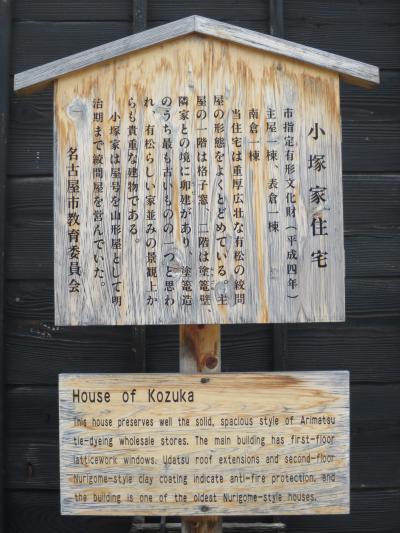 小塚家住宅
市指定有形文化財(平成四年)
主屋一棟、表倉一棟
南倉一棟
当住宅は重厚広壮な有松の絞問
屋の形態をよくとどめている。主
屋の一階は格子窓、二階は塗篭壁、
隣家との境に卯建があり、塗篭造
のうち最も古いものの一つと思わ
れ、有松らしい家並みの景観上か
らも貴重な建物である。
小塚家は屋号を山形屋として明
治期まで絞問屋を営んでいた。
名古屋市教育委員会
House of Kozuka
This house preserves well the solid, spacious style of Arimatsu
tie-dyeing wholesale stores. The main building has first-floor
latticework windows. Udatsu roof extensions and second-floor
Nurigome-style clay coating indicate anti-fire protection, and
the building is one of the oldest Nurigome-style houses.